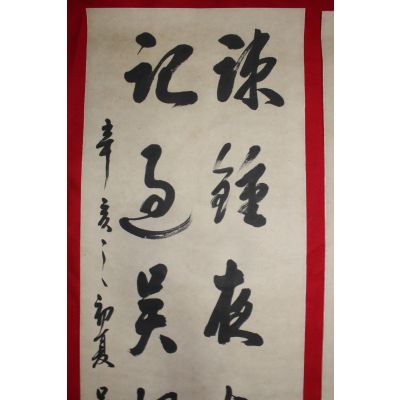 疎鍾夜
記過吳
辛亥之初夏